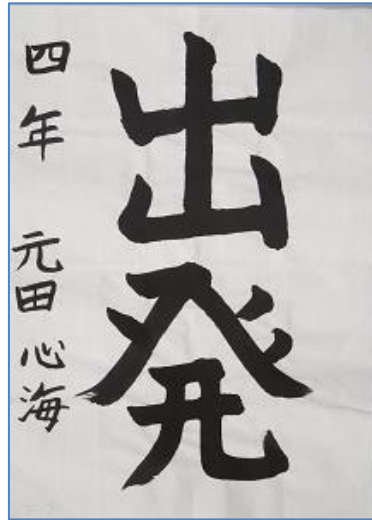 出発
四年 元田心海